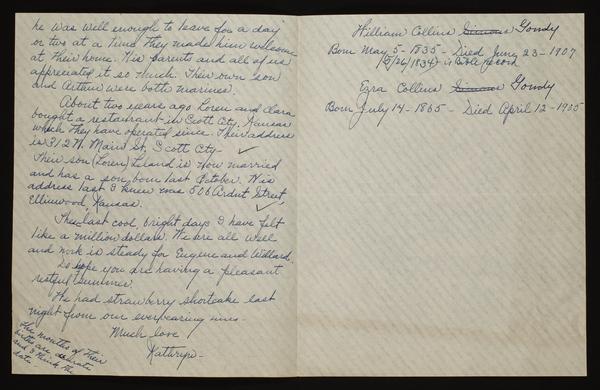 he was well enough to leave for a day
or two at a time they made him welcome
at their home. His parents and all of us
appreciated it so much. Their own son
and Arthur were both marines.
About two years ago Loren and Clara
bought a restaurant in Scott City, Kansas
which they have operated since. Their address
is 312 N. Main St, Scott City -
Their son (Loren) Leland is now married
and has a son born last October. His
address last I knew was 506 Ardnt Street,
Ellinwood, Kansas.
These last cool, bright days I have felt
like a million dollars. We are all well
and work is steady for Eugene and Willard.
Do hope you are having a pleasant
restful summer.
We had strawberry shortcake last
night from our everbearing ones -
Much love
Kathryn -
The months of their
births are accurate
and I think the
date.
William Collins Simons Gondy
Born May 5 - 1835 - Died June 23 - 1907
(5/26/1834) in Bible record
Ezra Collins Simons Gondy
Born July 14 - 1865 - Died April 12 - 1935